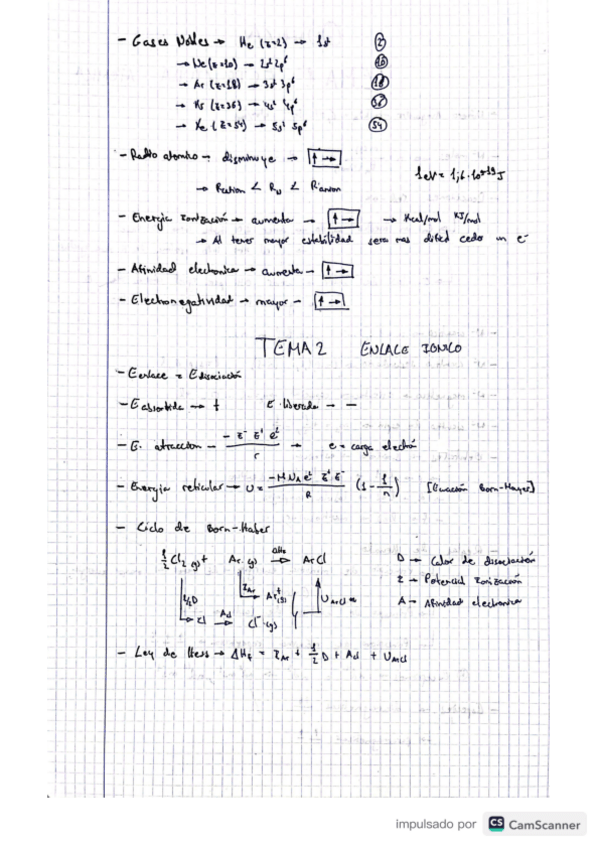 - Gases Nobles → He (z=2) → 1s² (2)
→ Ne (z=10) → 2s² 2p⁶ (10)
→ Ar (z=18) → 3s² 3p⁶ (18)
→ Kr (z=36) → 4s² 4p⁶ (36)
→ Xe (z=54) → 5s² 5p⁶ (54)
- Radio atomico → disminuye → ↑→
1eV = 1,6·10⁻¹⁹ J
→ Rcation < R_N < Ranion
- Energia Ionización → aumenta → ↑→ → Kcal/mol KJ/mol
→ Al tener mayor estabilidad sera mas dificil ceder un e⁻
- Afinidad electronica → aumenta → ↑→
- Electronegatividad → mayor → ↑→
TEMA 2 ENLACE IONICO
- Eenlace = Edisociación
- E absorbida → + E liberada → -
- E. atraccion → -z⁻ z⁺ e² / r → e = carga electrón
- Energia reticular → U = -M N_A e² z⁺ z⁻ / R (1 - 1/n) [Ecuación Born-Mayer]
- Ciclo de Born-Haber
1/2 Cl₂ (g) + Ar (g) → ΔHf → ArCl
D → Calor de disociación
I → Potencial Ionización
A → Afinidad electronica
1/2 D I_Ar Ar⁺(g) U ArCl
Cl → Acl → Cl⁻(g)
- Ley de Hess → ΔHf = I_Ar + 1/2 D + Acl + U ArCl
impulsado por CS CamScanner